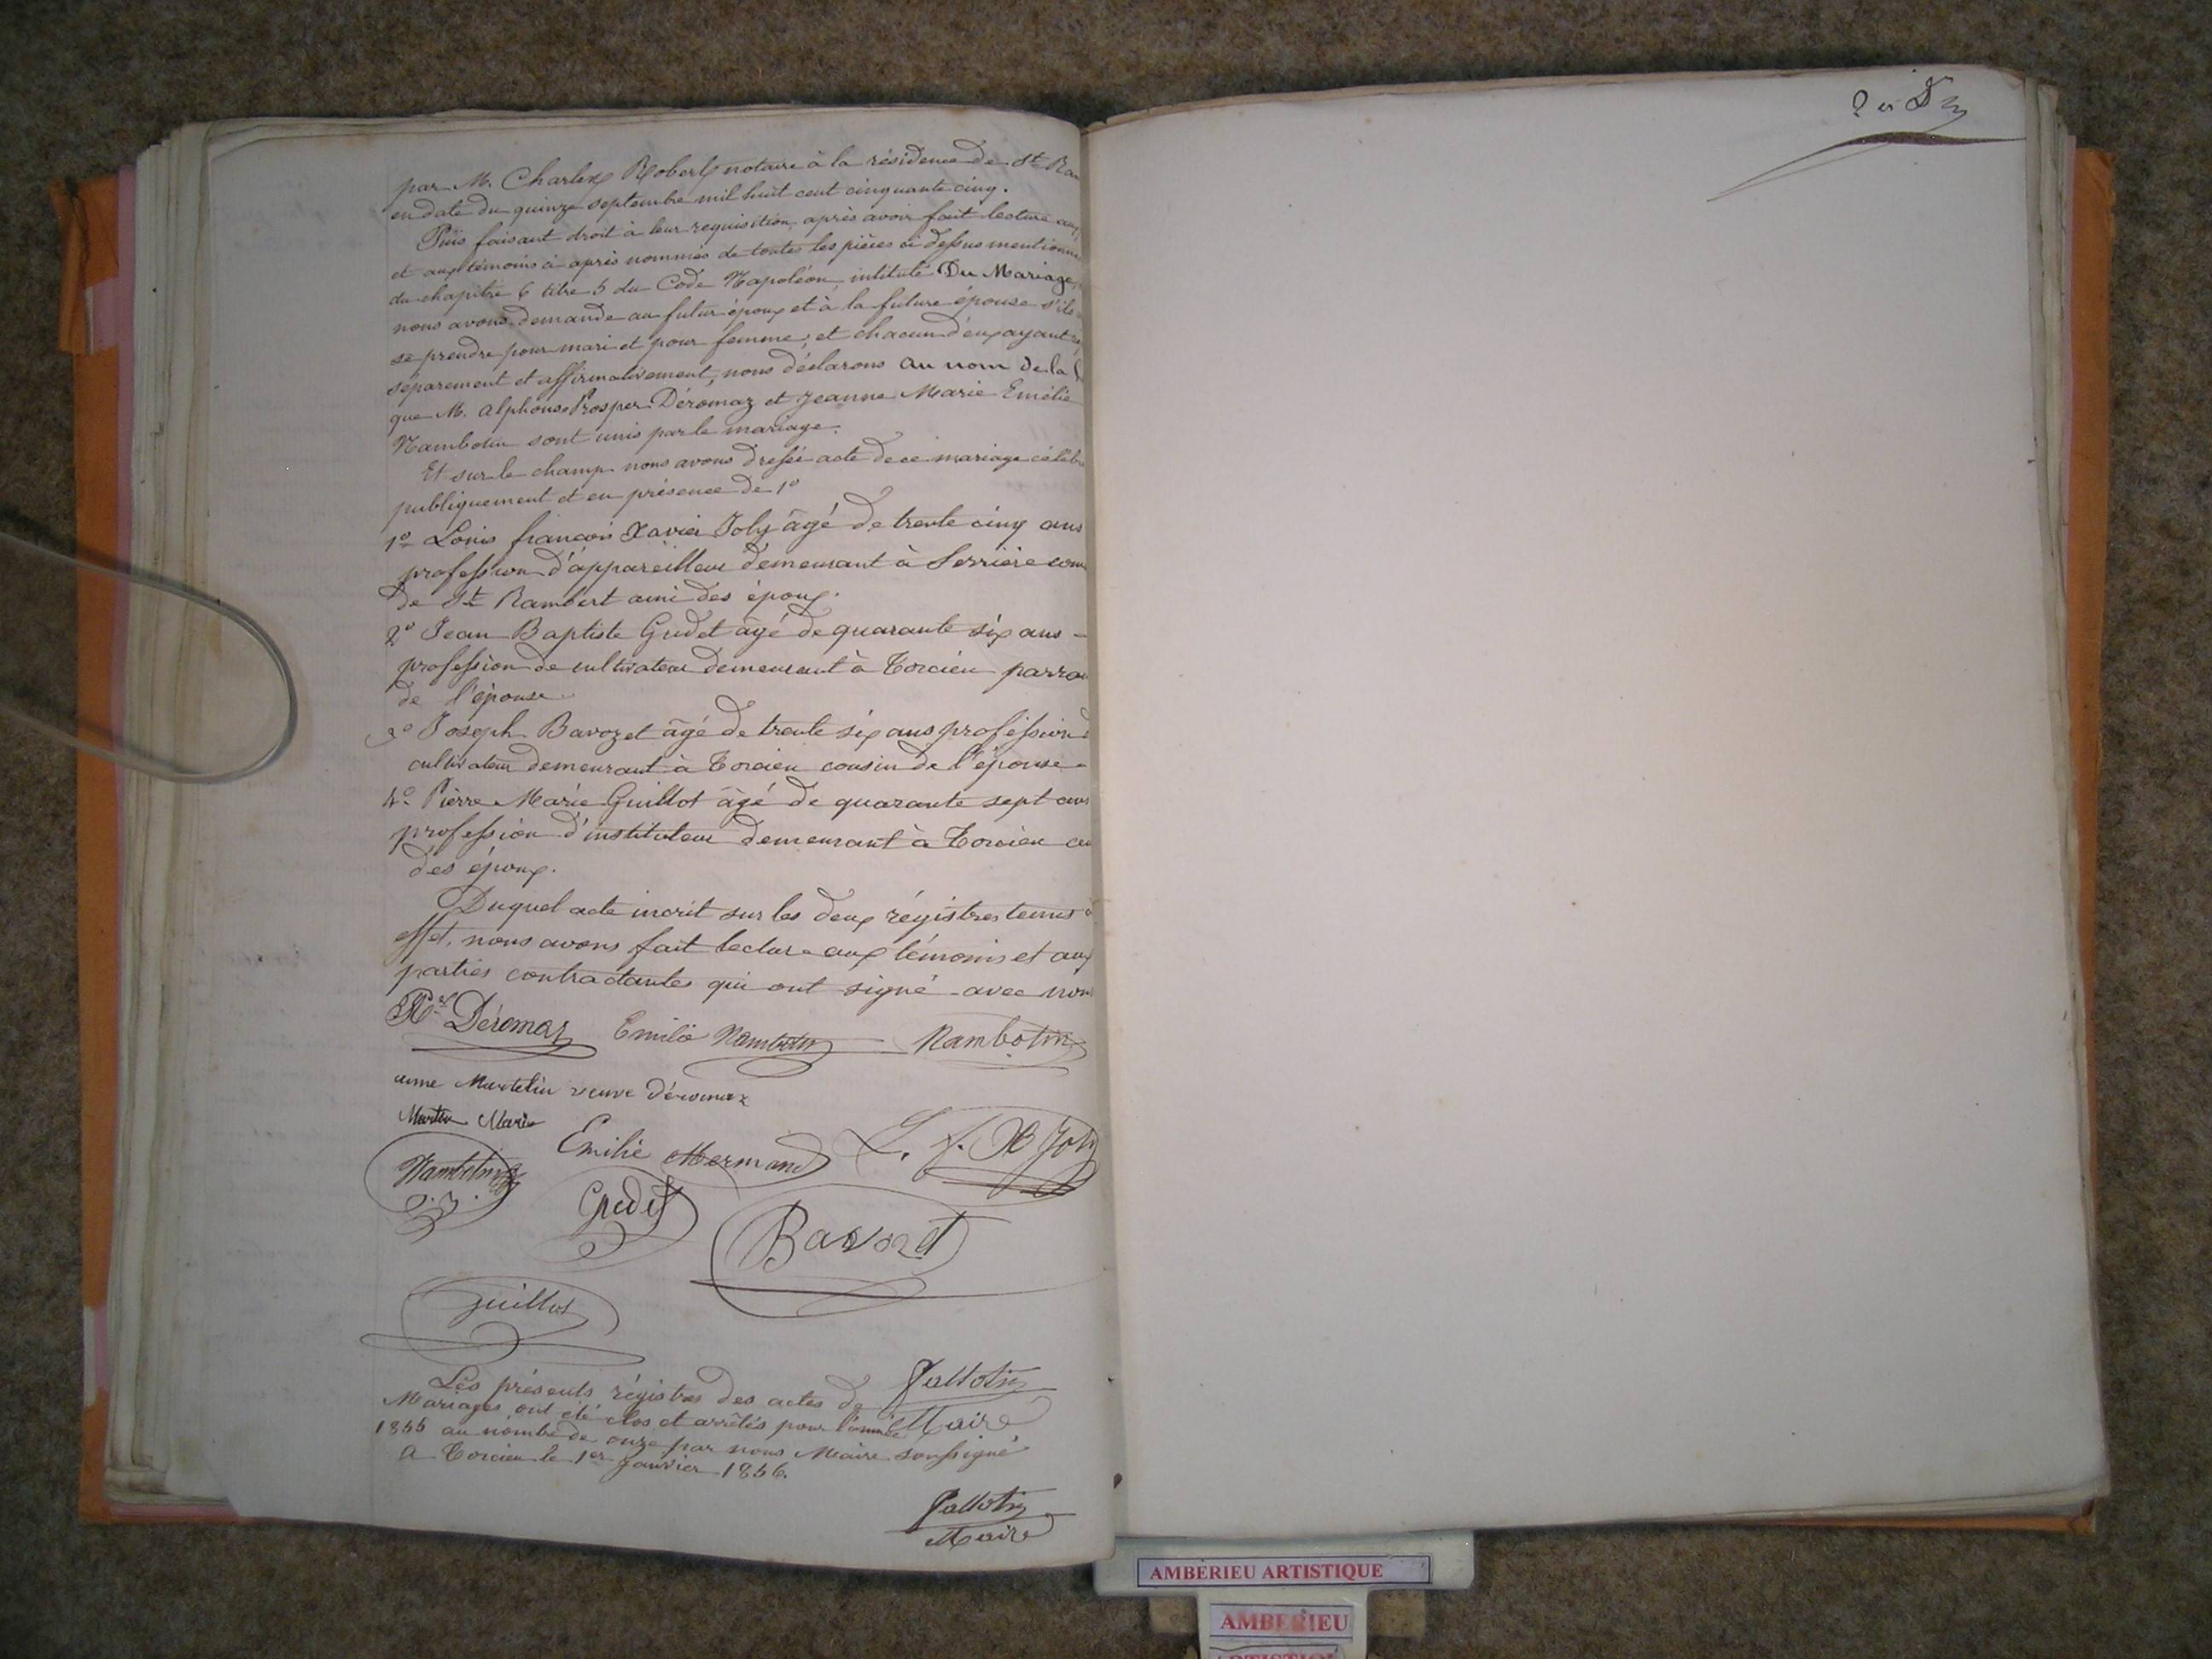 par M. Charles Robert notaire à la résidence de St Ram
en date du quinze septembre mil huit cent cinquante cinq.
Puis faisant droit à leur requisition, après avoir fait lecture aux
et aux témoins ci après nommés de toutes les pièces ci dessus mentionné
du chapitre 6 titre 5 du Code Napoléon, intitulé Du Mariage,
nous avons demandé au futur époux et à la future épouse s'ils
se prendre pour mari et pour femme; et chacun d'eux ayant
séparement et affirmativement, nous déclarons au nom de la
que M. Alphonse Prosper Déromaz et Jeanne Marie Emélie
Nambotin sont unis par le mariage.
Et sur le champ nous avons dressé acte de ce mariage célébr
publiquement et en présence de 1°
1° Louis françois Xavier Joly âgé de trente cinq ans
profession d'appareilleur demeurant à Serrière com
de St Rambert ami des époux.
2° Jean Baptiste Gudet âgé de quarante six ans
profession de cultivateur demeurant à Torcieu parrai
de l'épouse
3° Joseph Bavozet âgé de trente six ans profession d
cultivateur demeurant à Torcieu cousin de l'épouse
4° Pierre Marie Guillot âgé de quarante sept ans
profession d'instituteur demeurant à Torcieu
des époux.
Duquel acte incrit sur les deux régistres tenus à
effet, nous avons fait lecture aux témoins et aux
parties contractantes qui ont signé avec nous
Déromaz Emilie Nambotin Nambotin
anne Martelin veuve déromaz
Marie
Emilie Mermand L. f. X Joly
Nambotin
Gudet
Bavozet
Guillot
Les présents régistres des actes de
Mariages ont été clos et arrêtés pour l'année
1855 au nombre de onze par nous Maire soussigné
A Torcieu le 1er Janvier 1856.
Maire
Maire
AMBERIEU ARTISTIQUE
AMBERIEU
ARTISTIQUE